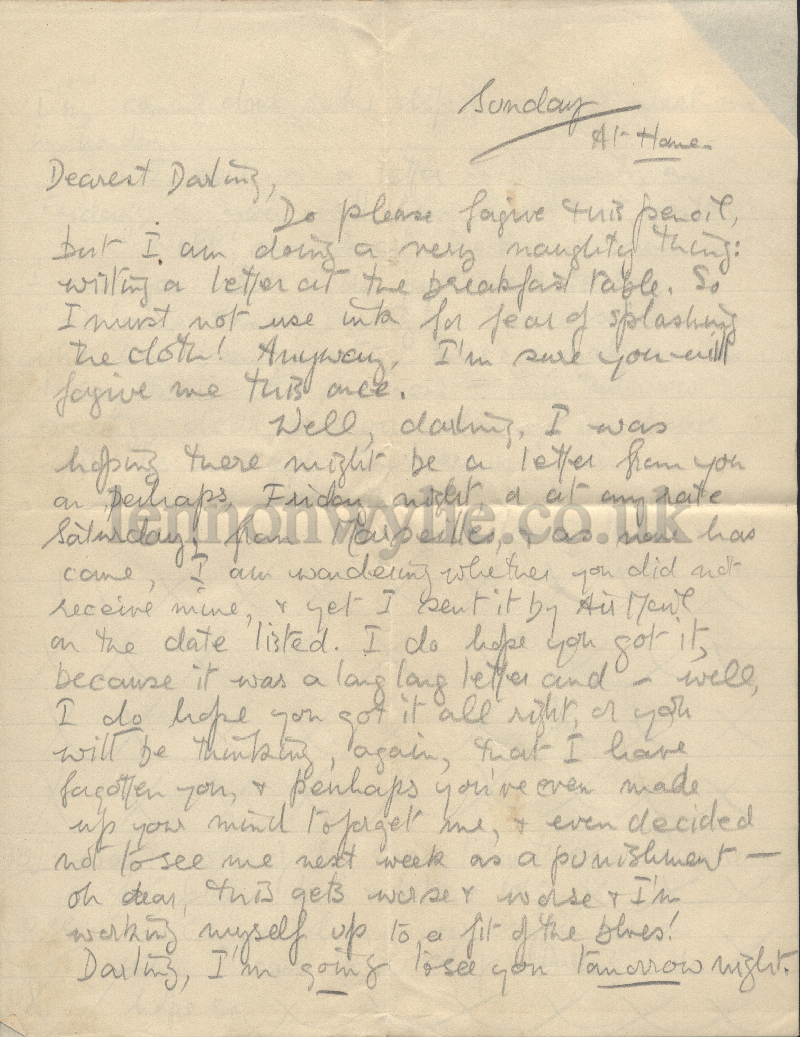 Sunday
At Home.
Dearest Darling,
Do please forgive this pencil,
but I am doing a very naughty thing:
writing a letter at the breakfast table. So
I must not use ink for fear of splashing
the cloth! Anyway, I'm sure you will
forgive me this once.
Well, darling, I was
hoping there might be a letter from you
on perhaps, Friday night, or at any rate
Saturday, from Marseilles, & as none has
come, I am wondering whether you did not
receive mine, & yet I sent it by Air Mail
on the date listed. I do hope you got it,
because it was a long long letter and - well,
I do hope you got it all right, or you
will be thinking, again, that I have
forgotten you, & perhaps you've even made
up your mind to forget me, & even decided
not to see me next week as a punishment —
oh dear, this gets worse & worse & I'm
working myself up to a fit of the blues!
Darling, I'm going to see you tomorrow night.
lennonwylie.co.uk